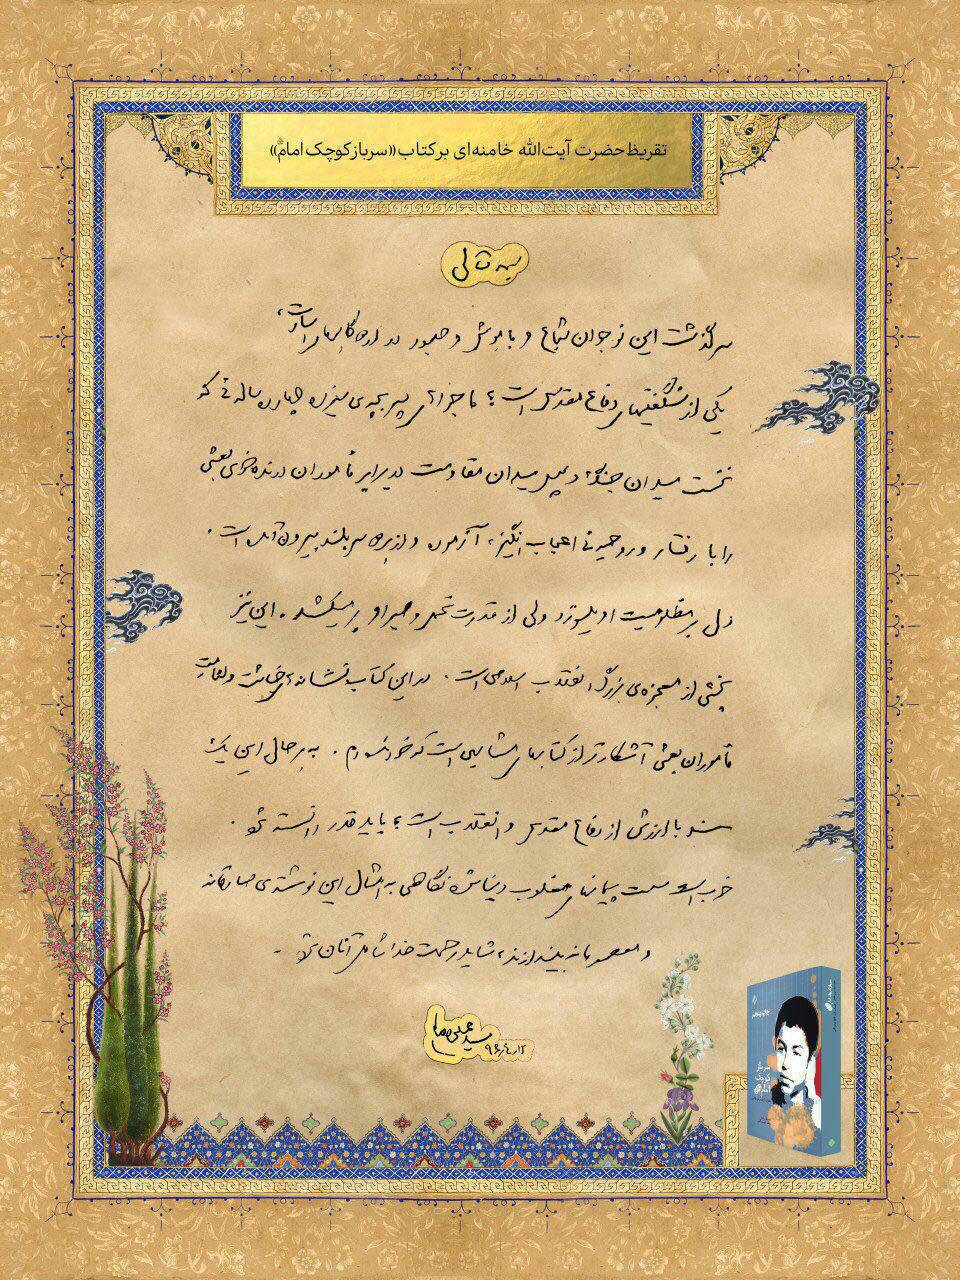 تقریظ حضرت آیت‌الله خامنه‌ای بر کتاب «سرباز کوچک امام(ره)»
بسمه تعالی
سرگذشت این نوجوان شجاع و باهوش و صبور در اردوگاههای اسارت،
یکی از شگفتیهای دفاع مقدس است؛ ماجراهای پسربچه‌ی سیزده چهارده ساله‌ئی که
نخست میدان جنگ و سپس میدان مقاومت در برابر مأموران درنده‌خوی بعثی
را با رفتار و روحیه‌ئی اعجاب‌انگیز، آزموده و از هر دو سربلند بیرون آمده است.
دل بر مظلومیت او میسوزد ولی از قدرت و تحمل و صبر او پر میکشد. این نیز
بخشی از معجزه‌ی بزرگ انقلاب اسلامی است. در این کتاب نشانه‌ی خباثت و لئامت
مأموران بعثی آشکارتر از کتابهای مشابهی است که خوانده‌ام. به هر حال این یک
سند باارزش از دفاع مقدس و انقلاب است؛ باید قدر دانسته شود.
خوب است سست پیمانهای مغلوب دنیا شده نگاهی به امثال این نوشته‌ی صادقانه
و معصومانه بیندازند، شاید رحمت خدا شامل آنان شود.
سید علی خامنه‌ای
چاپ پنجم
سرباز
کوچک
امام